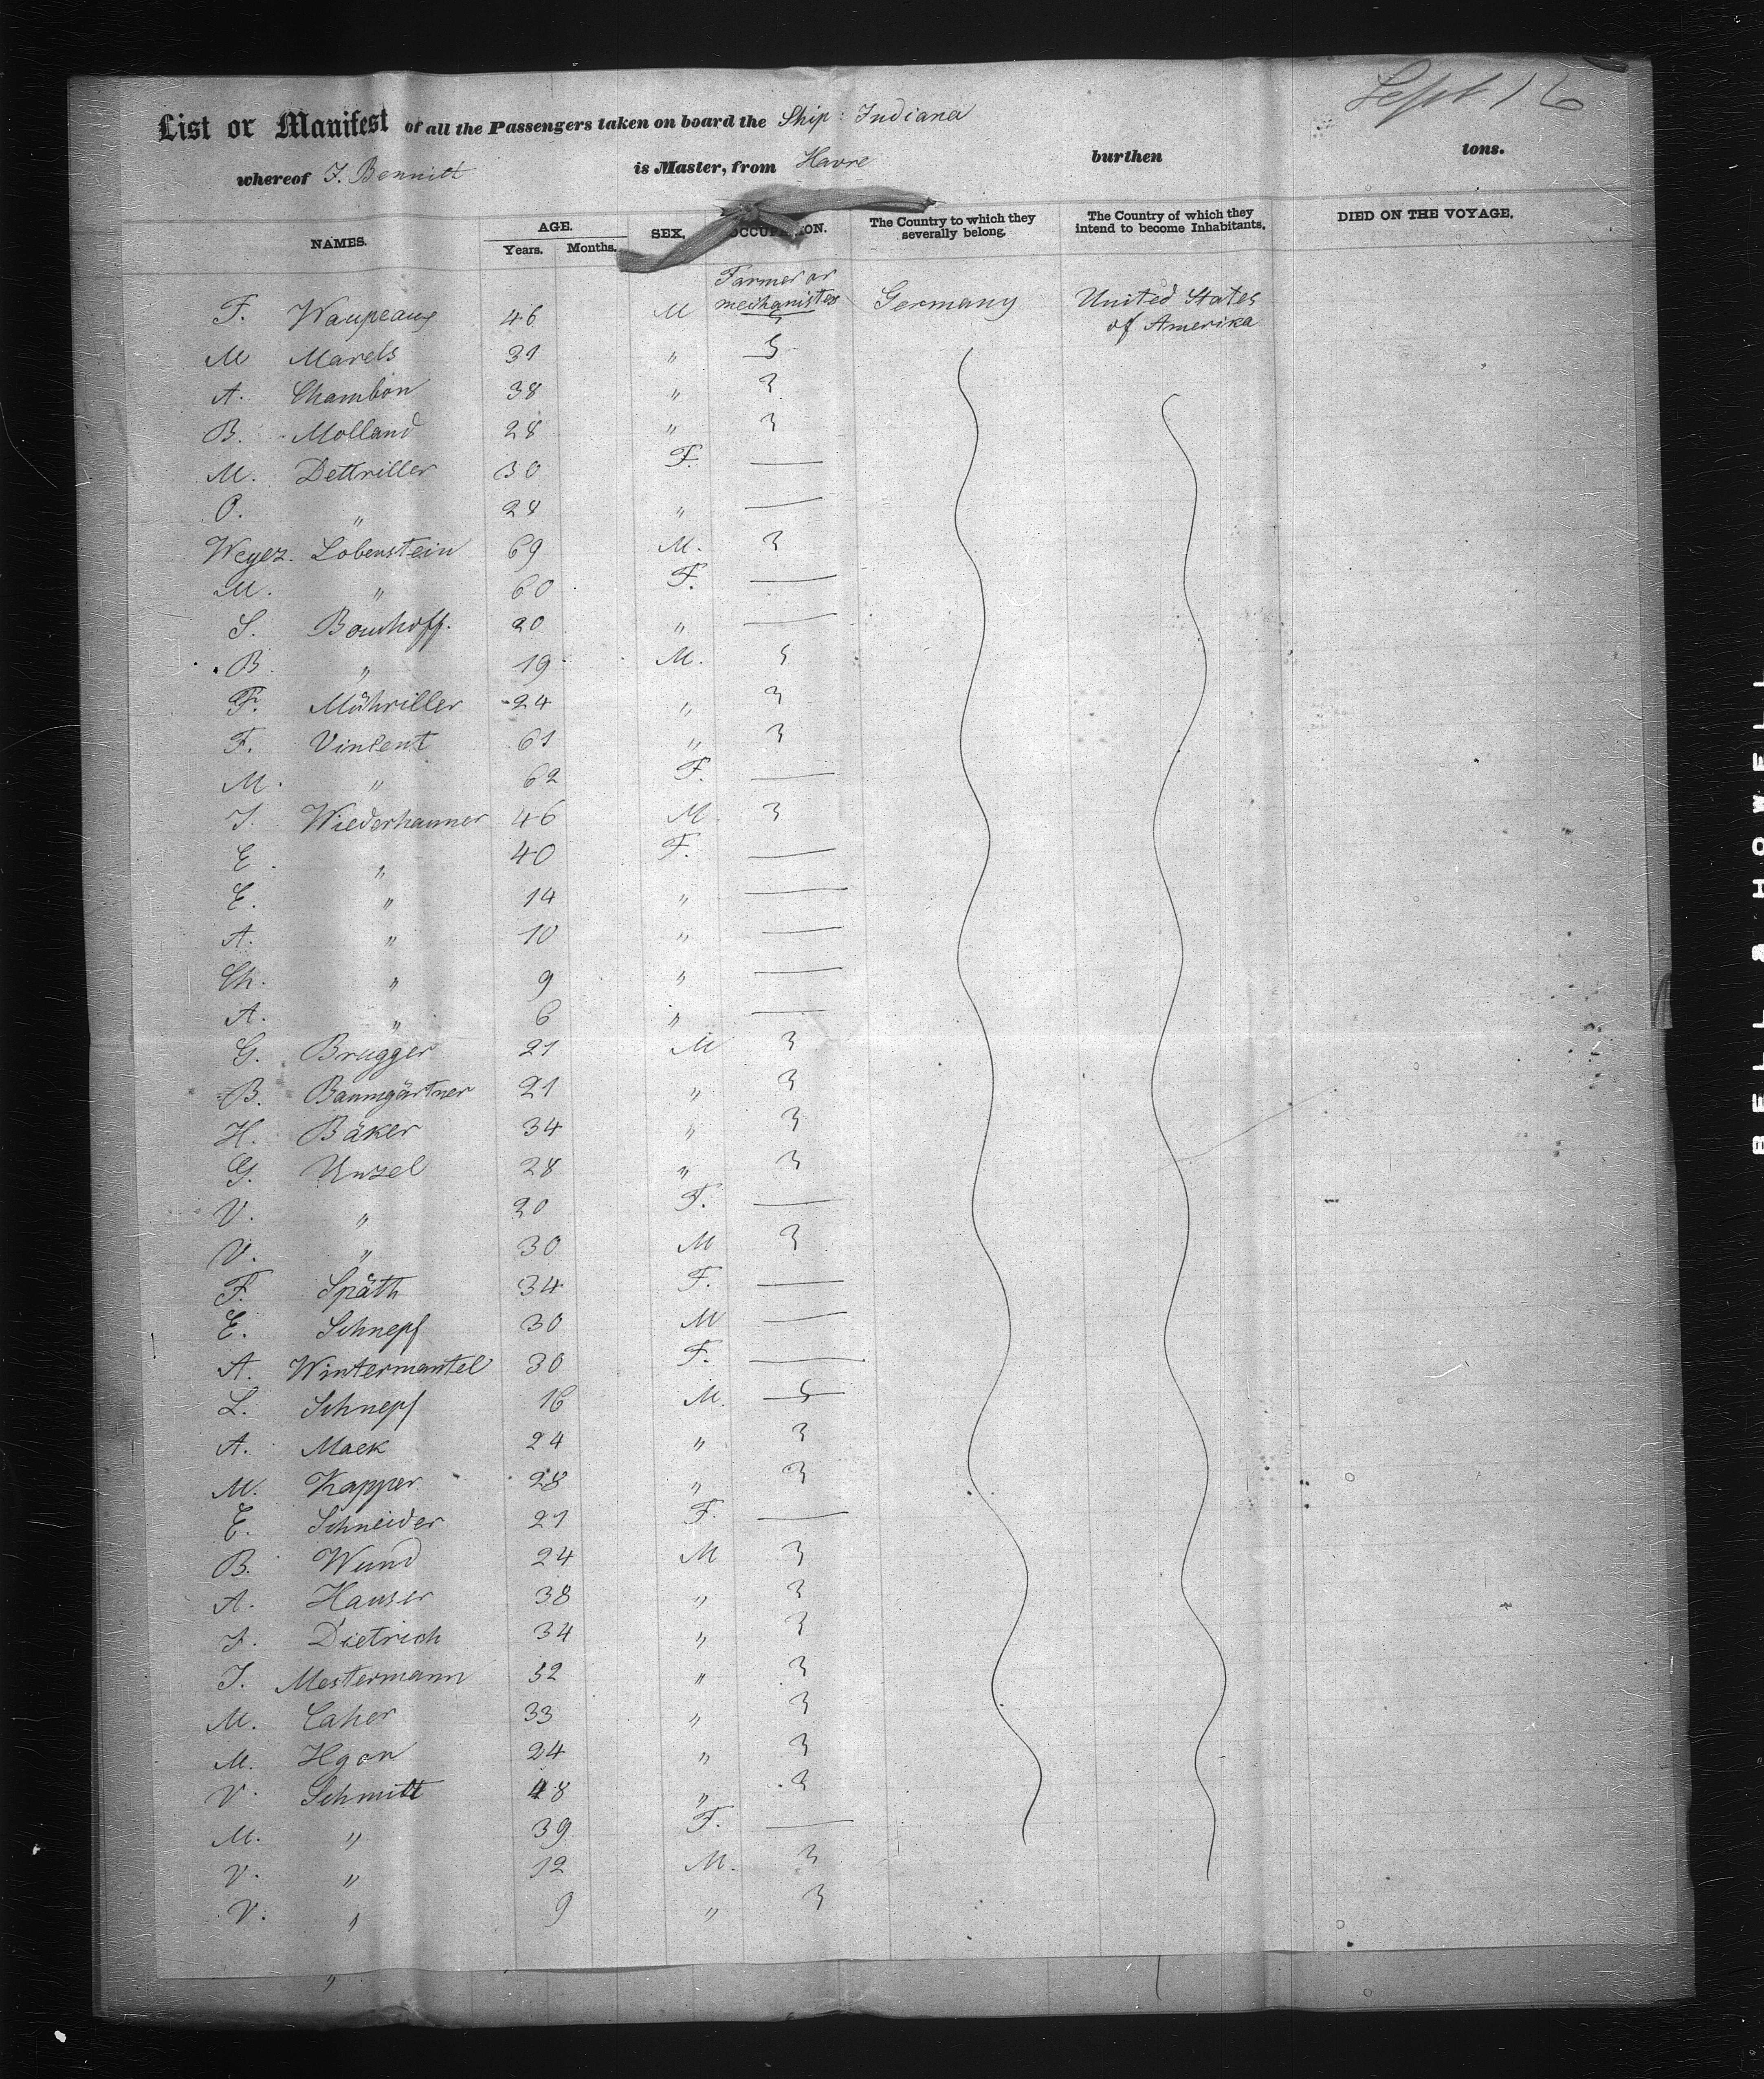 Sept 16
List or Manifest of all the Passengers taken on board the Ship: Indiana
whereof J. Bennitt is Master, from Havre burthen tons.
NAMES. AGE. Years. Months. SEX. OCCUPATION. The Country to which they severally belong. The Country of which they intend to become Inhabitants. DIED ON THE VOYAGE.
F. Waupeaux 46 M Farmer or mechanister Germany United States of Amerika
M Marels 31 "
A. Chambon 38 "
B. Molland 28 "
M. Dettriller 30 F. —
O. " 28 " —
Weyez. Lobenstein 69 M.
M. " 60 F. —
S. Bouhoff. 20 " —
B. " 19 M.
F. Mühriller 24 "
F. Vincent 61 "
M. " 62 F. —
J. Wiederhanner 46 M
E. " 40 F. —
E. " 14 " —
A. " 10 " —
Ch. " 9 " —
A. " 6 " —
G. Brugger 21 M
B. Baumgärtner 21 "
H. Bäker 34 "
G. Unzel 28 "
V. " 20 F. —
V. " 30 M
F. Späth 34 F. —
E. Schnepf 30 M —
A. Wintermantel 30 F. —
L. Schnepf 16 M.
A. Maek 24 "
M. Kapper 28 "
E. Schneider 21 F. —
B. Wund 24 M
A. Hauser 38 "
J. Dietrich 34 "
J. Mestermann 32 "
M. Caher 33 "
M. Hgon 24 "
V. Schmitt 48 "
M. " 39 F. —
V. " 12 M.
V. " 9 "
"
BELL & HOWELL